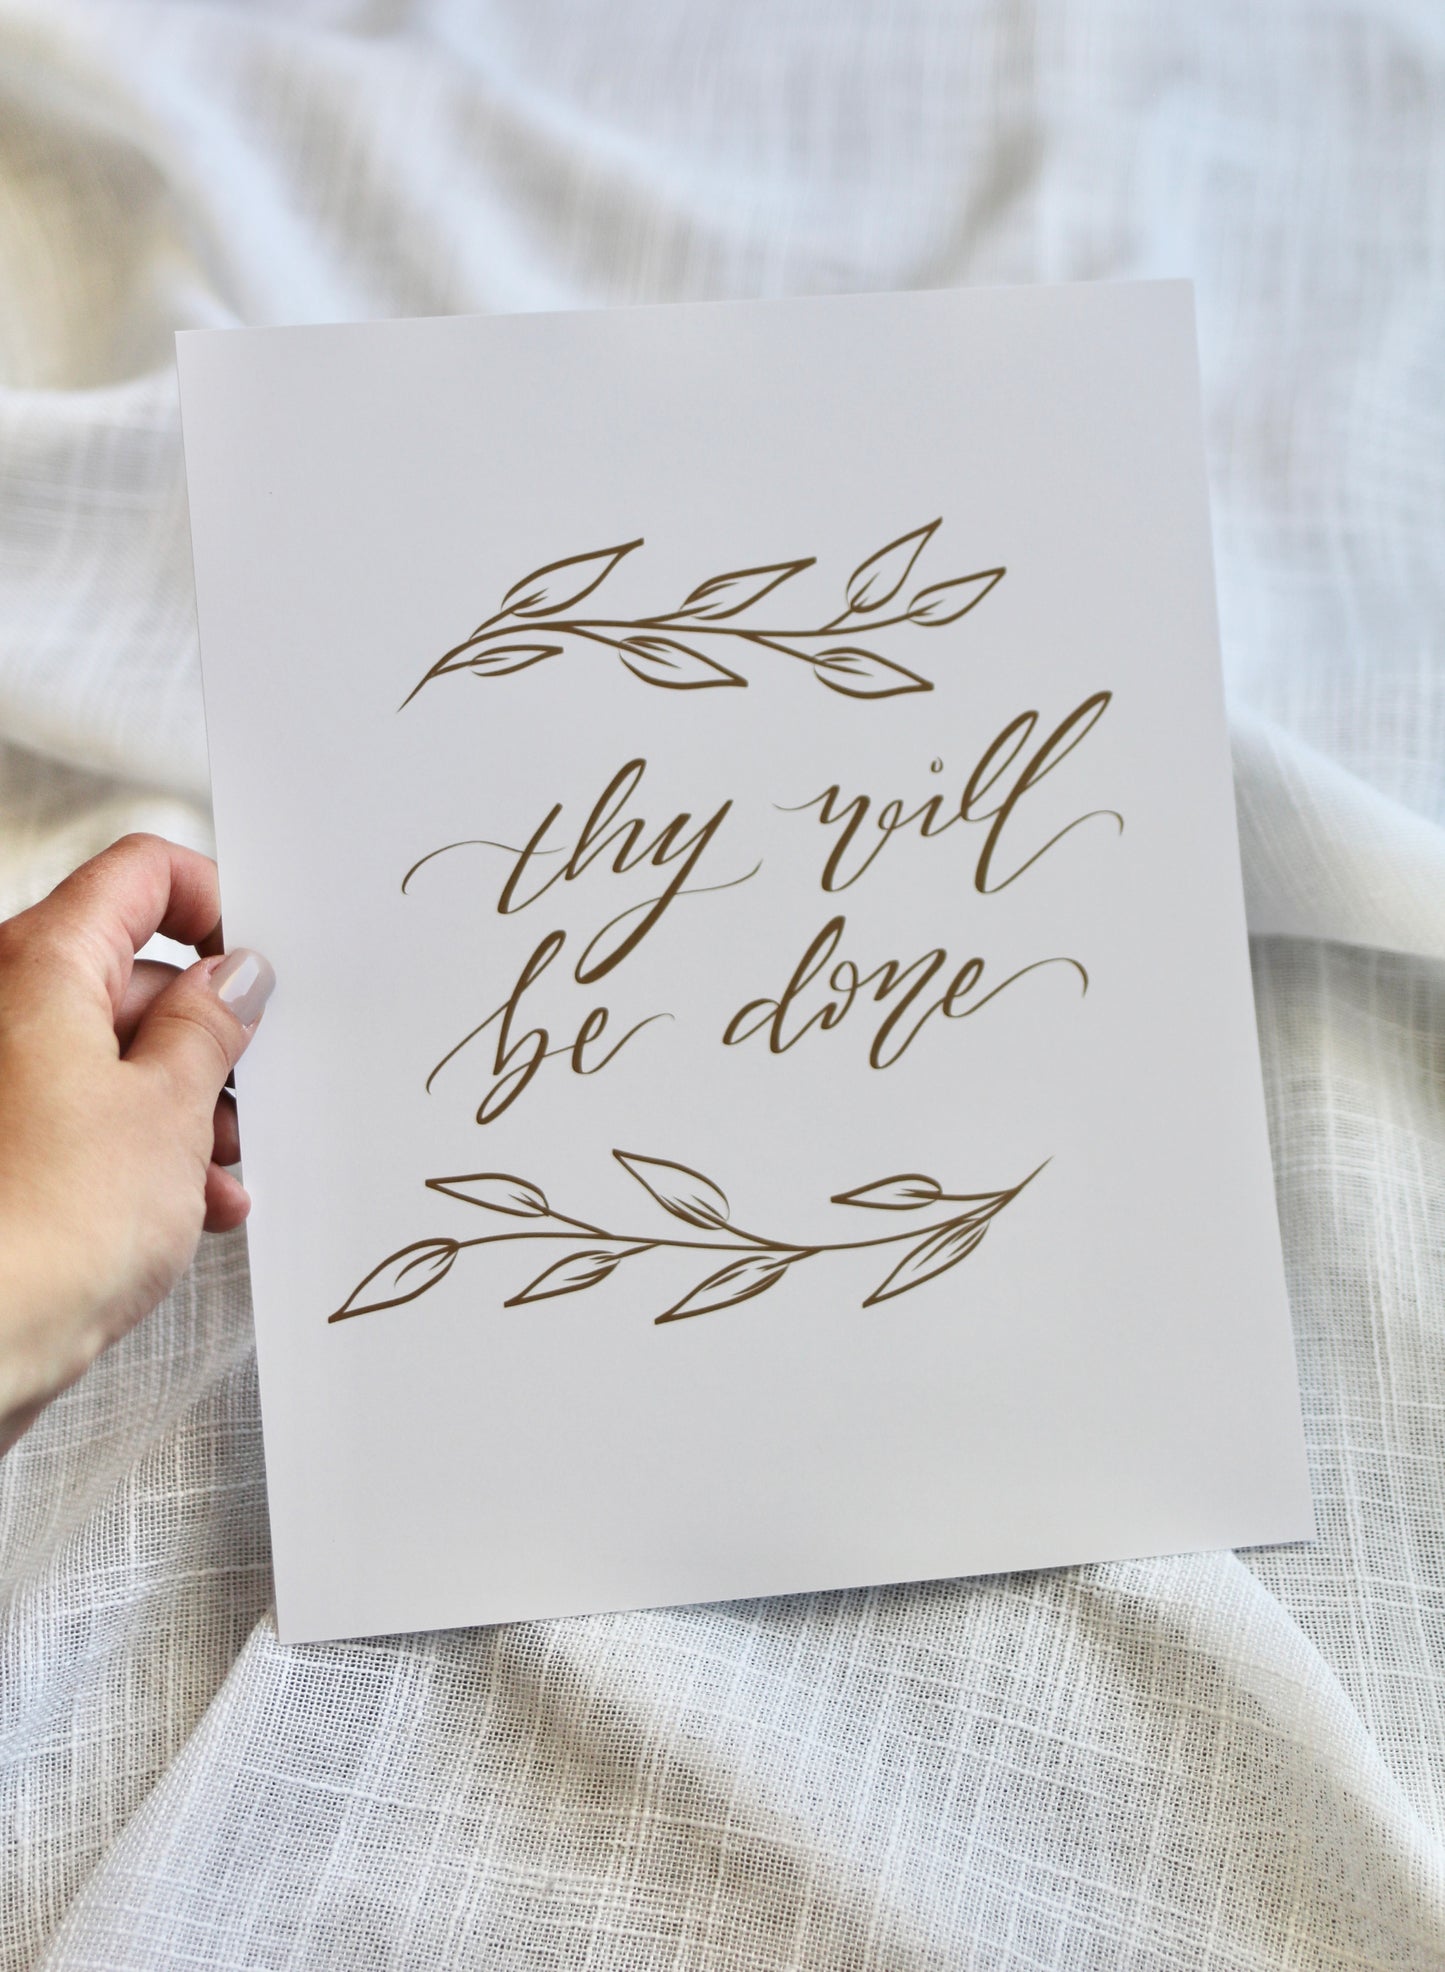 thy will
be done